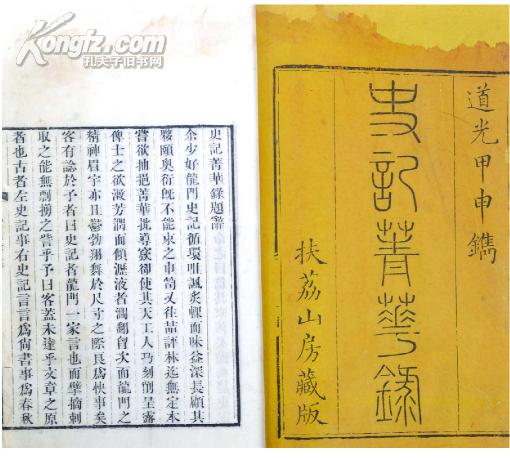 Kongfz.com
孔夫子旧书网
道光甲申鐫
史記菁華録
扶荔山房藏版
史記菁華錄題辭
余少好龍門史記循環咀諷炙輠而味益深長顧其
夥頤奧衍既不能束之巾笥又往喆評林迄無定本
嘗欲抽挹菁華批導窾卻使其天工人巧刻削呈露
俾士之欲漱芳潤而傾瀝液者瀾翻胷次而龍門之
精神眉宇亦且鬱勃翔舞於尺寸之際良爲快事矣
客有諗於予者曰史記者龍門一家言也而擘摘刺
取之能無剽掇之譏乎予曰客蓋未達乎文章之原
者也古者左史記事右史記言言爲尙書事爲春秋